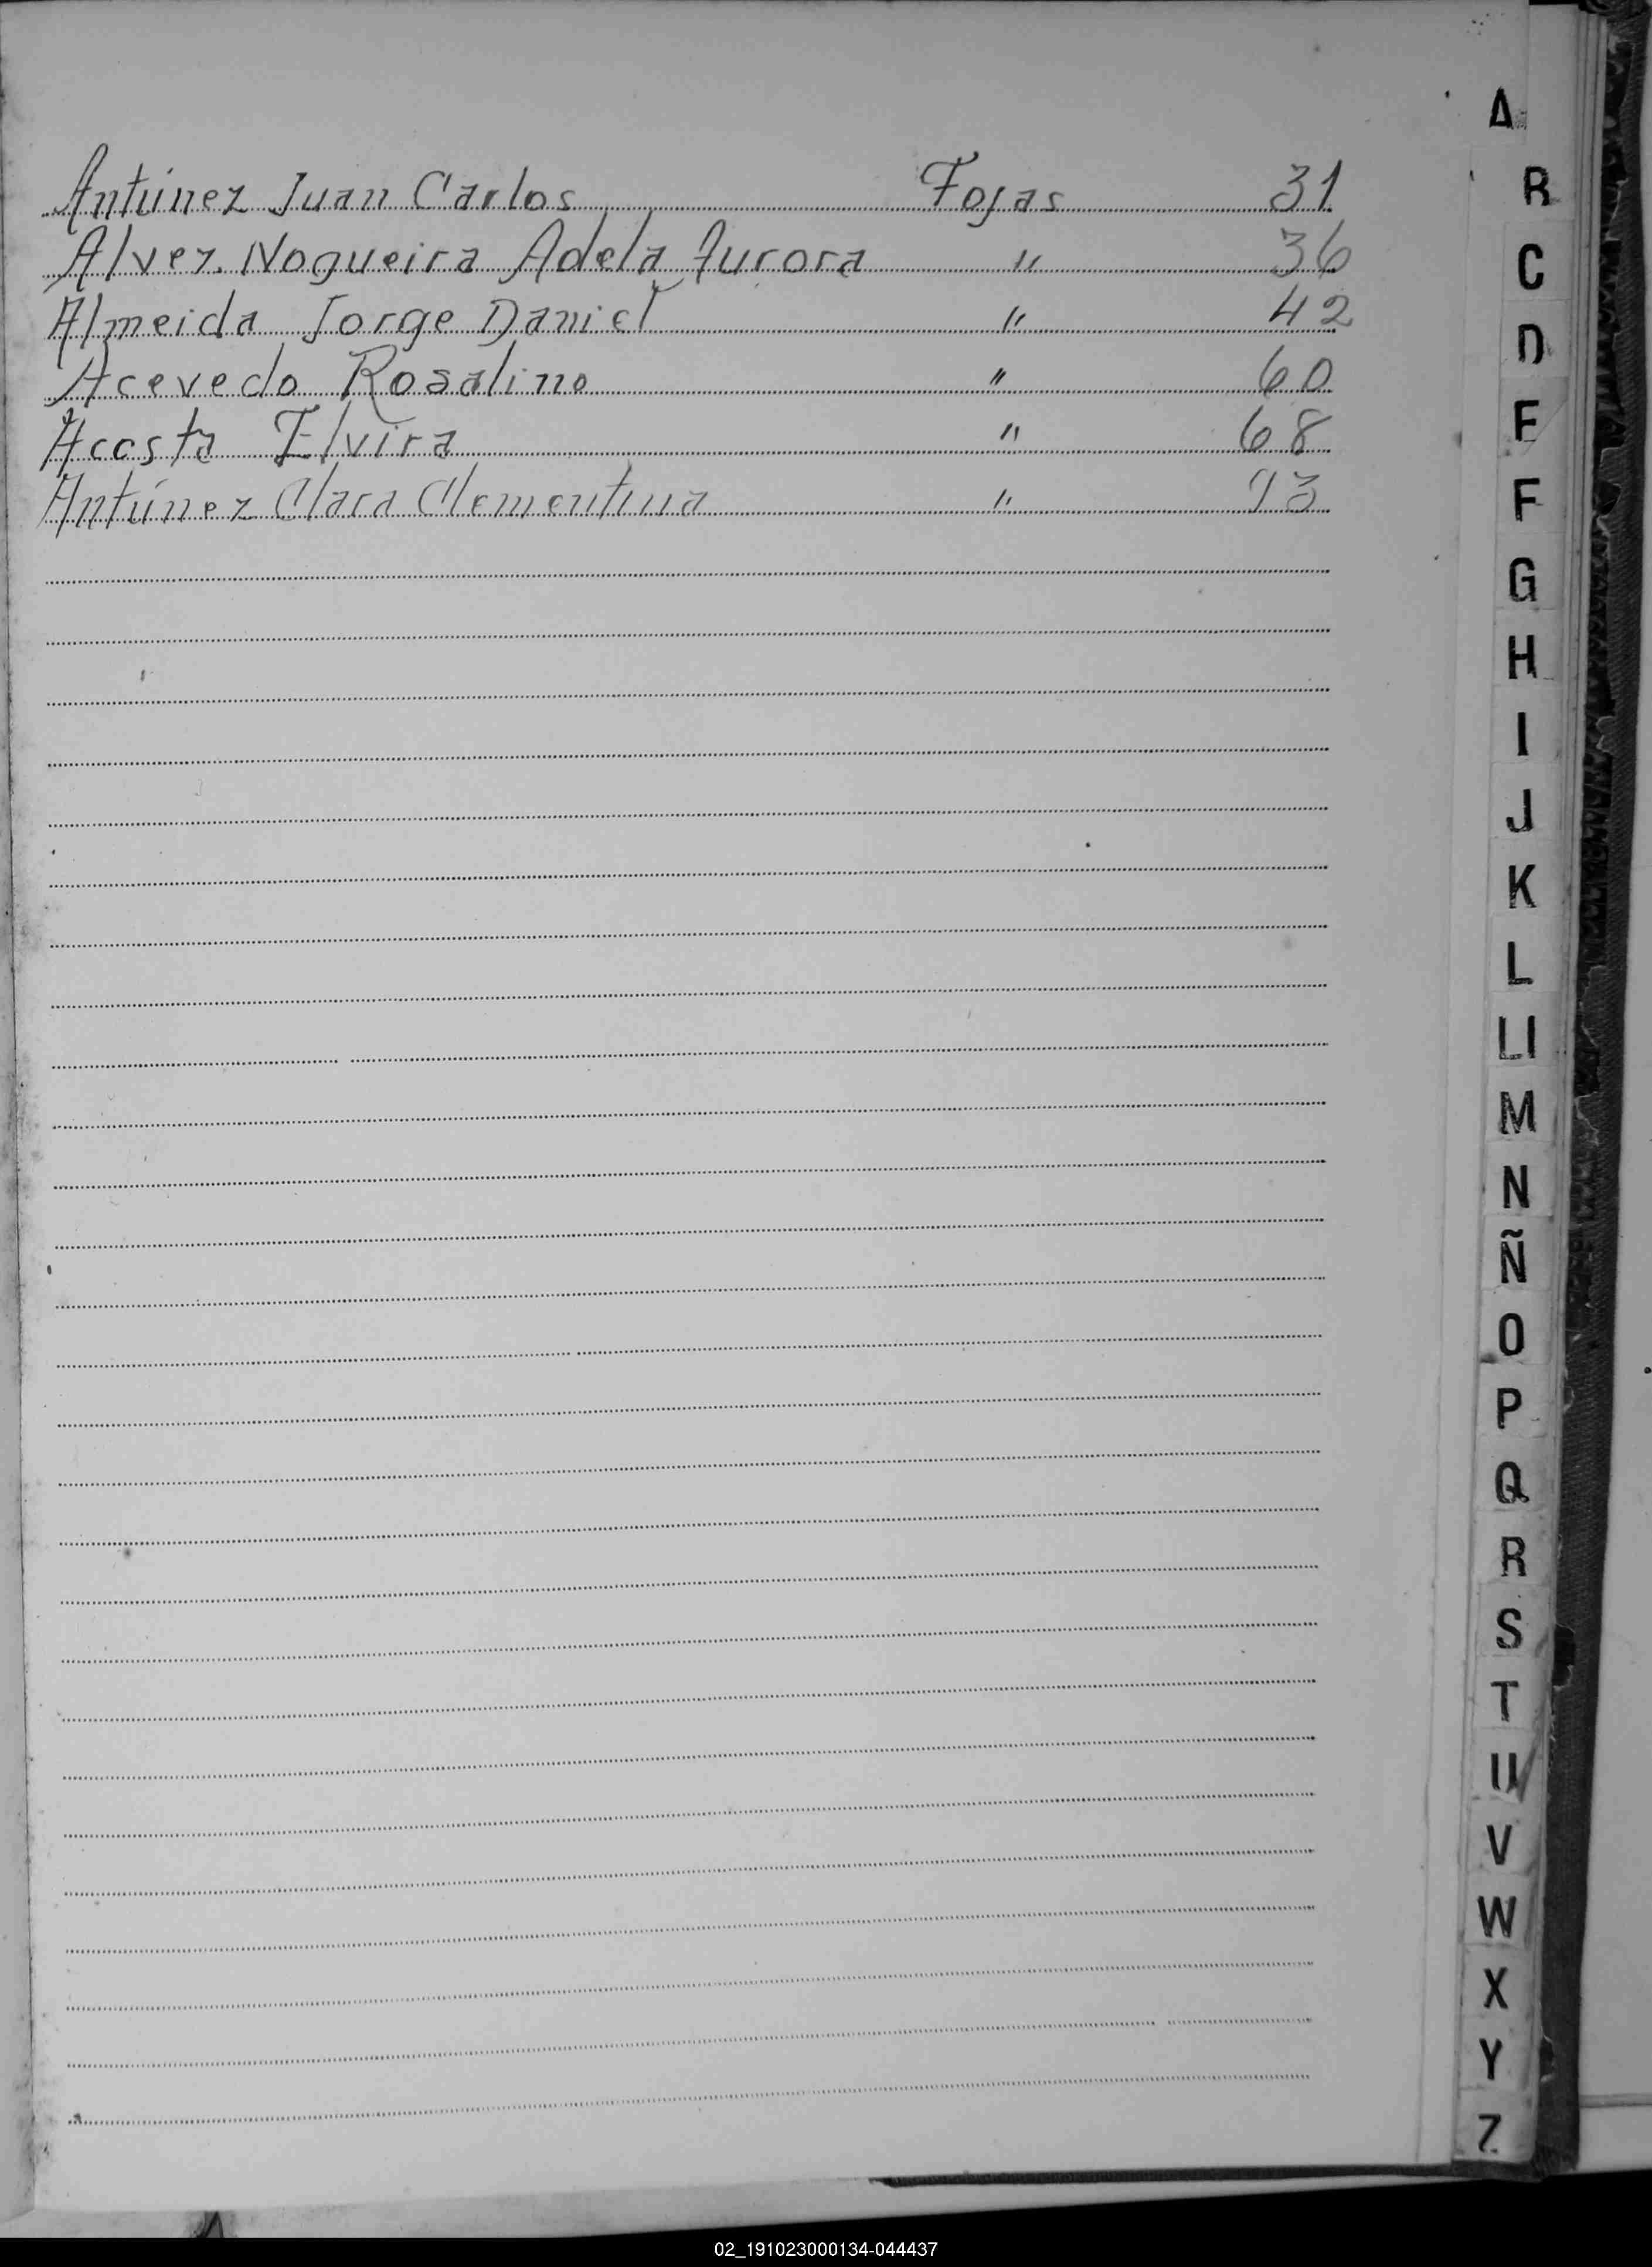 Antúnez Juan Carlos Fojas 31
Alvez Nogueira Adela Aurora " 36
Almeida Jorge Daniel " 42
Acevedo Rosalino " 60
Acosta Elvira " 68
Antúnez Clara Clementina "
A
B
C
D
E
F
G
H
I
J
K
L
Ll
M
N
Ñ
O
P
Q
R
S
T
U
V
W
X
Y
Z
02_191023000134-044437